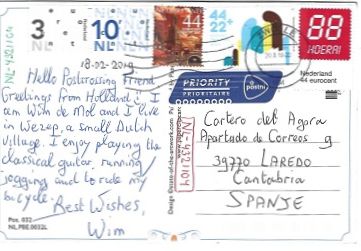 3
NL
10
NL
44
44
22+
88
HOERA!
Nederland
44 eurocent
PRIORITY
PRIORITAIRE
postnl
NL-4321104
18-02-2019
Hello Postcrossing Friend
Greetings from Holland! I
am Wim de Mol and I live
in Wezep, a small Dutch
village. I enjoy playing the
classical guitar, running
jogging and to ride my
bicycle.
Best Wishes,
Wim
Pos. 032
NL PBE.0032L
NL-4321104
Cortero del Agora
Apartado de Correos 9
39770 LAREDO
Cantabria
SPANJE